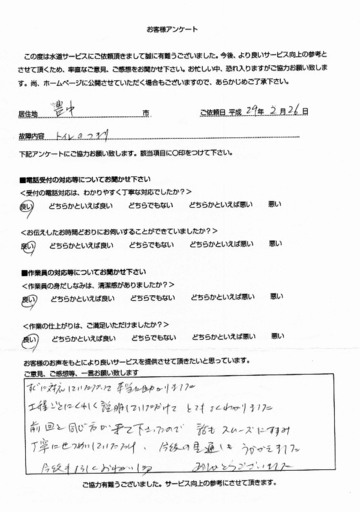 お客様アンケート
この度は水道サービスにご依頼頂きまして誠に有難うございました。今後、より良いサービス向上の参考と
させて頂くため、率直なご意見、ご感想をお聞かせ下さい。お忙しい中、恐れ入りますがご協力お願い致しま
す。尚、ホームページに公開させていただく場合もございますので、あらかじめご了承下さい。
居住地 豊中 市 ご依頼日 平成 29年 2月 26日
故障内容 トイレのつまり
下記アンケートにご協力お願い致します。該当項目に○印をつけて下さい。
■電話受付の対応等についてお聞かせ下さい
<受付の電話対応は、わかりやすく丁寧な対応でしたか?>
良い どちらかといえば良い どちらでもない どちらかといえば悪い 悪い
<お伝えしたお時間どおりにお伺いすることができていましたか?>
良い どちらかといえば良い どちらでもない どちらかといえば悪い 悪い
■作業員の対応等についてお聞かせ下さい
<作業員の身だしなみは、清潔感がありましたか?>
良い どちらかといえば良い どちらでもない どちらかといえば悪い 悪い
<作業の仕上がりは、ご満足いただけましたか?>
良い どちらかといえば良い どちらでもない どちらかといえば悪い 悪い
お客様のお声をもとにより良いサービスを提供させて頂きたいと思っています。
ご意見、ご感想等、一言お願い致します
対応していただいて 助かりました
工程ごとにくわしく説明していただけて とてもよくわかりました
前回と同じ方が来て下さったので 話もスムーズにすみ
丁寧にせつめいしていただけ、今後の見通しも うかがえました
今後もよろしくおねがいします ありがとうございました
ご協力有難うございました。サービス向上の参考にさせて頂きます。